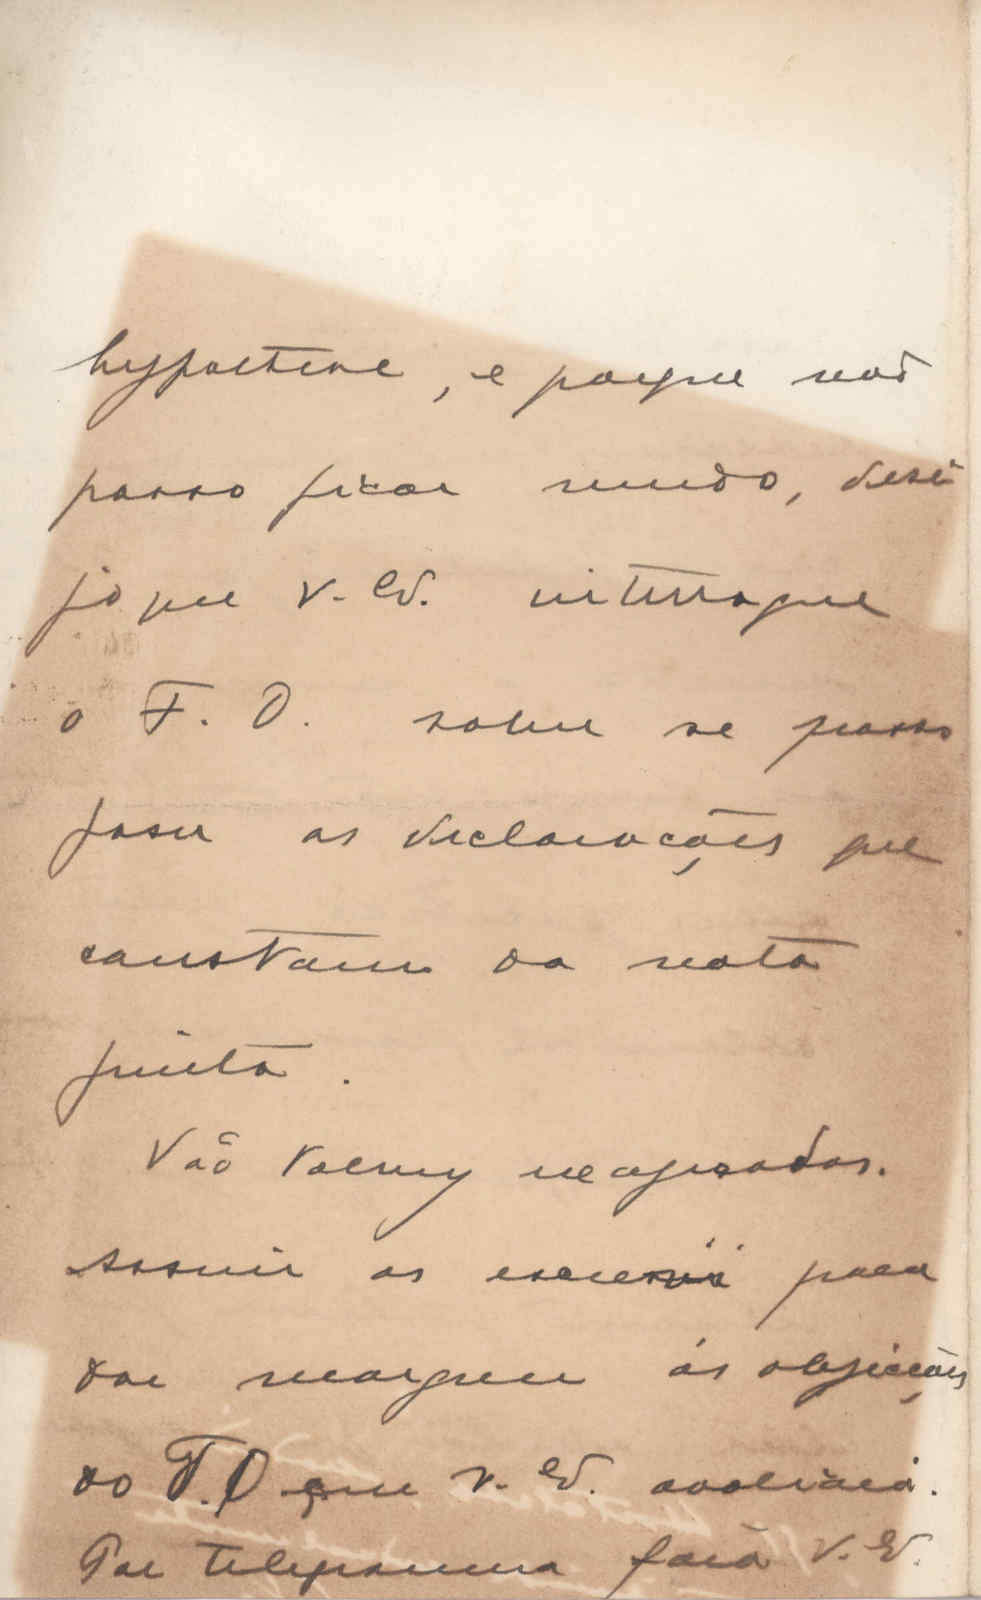 hypothese, e porque não
posso ficar mudo, dese-
jo que V. Ex. interrogue
o F. O. sobre se posso
fazer as declarações que
constam da nota
junta.
Vão
assim as escrevi para
dar margem ás objecções
do F. O que V. Ex. avaliará.
Por telegramma fará V. Ex.